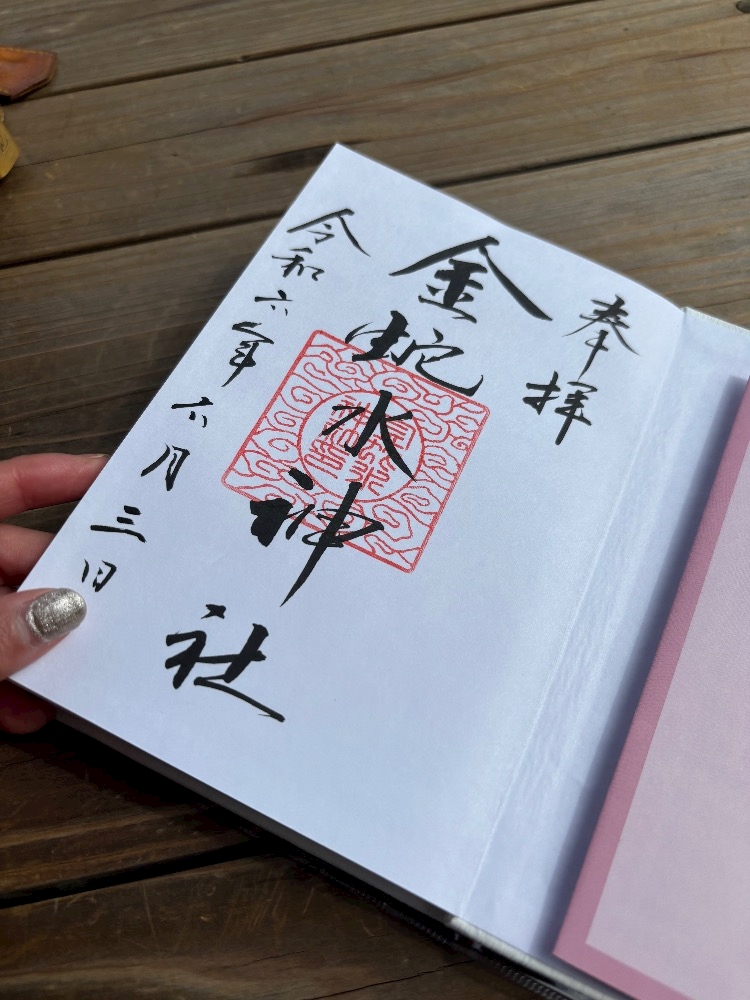 奉拝
金蛇水神社
令和六年六月三日